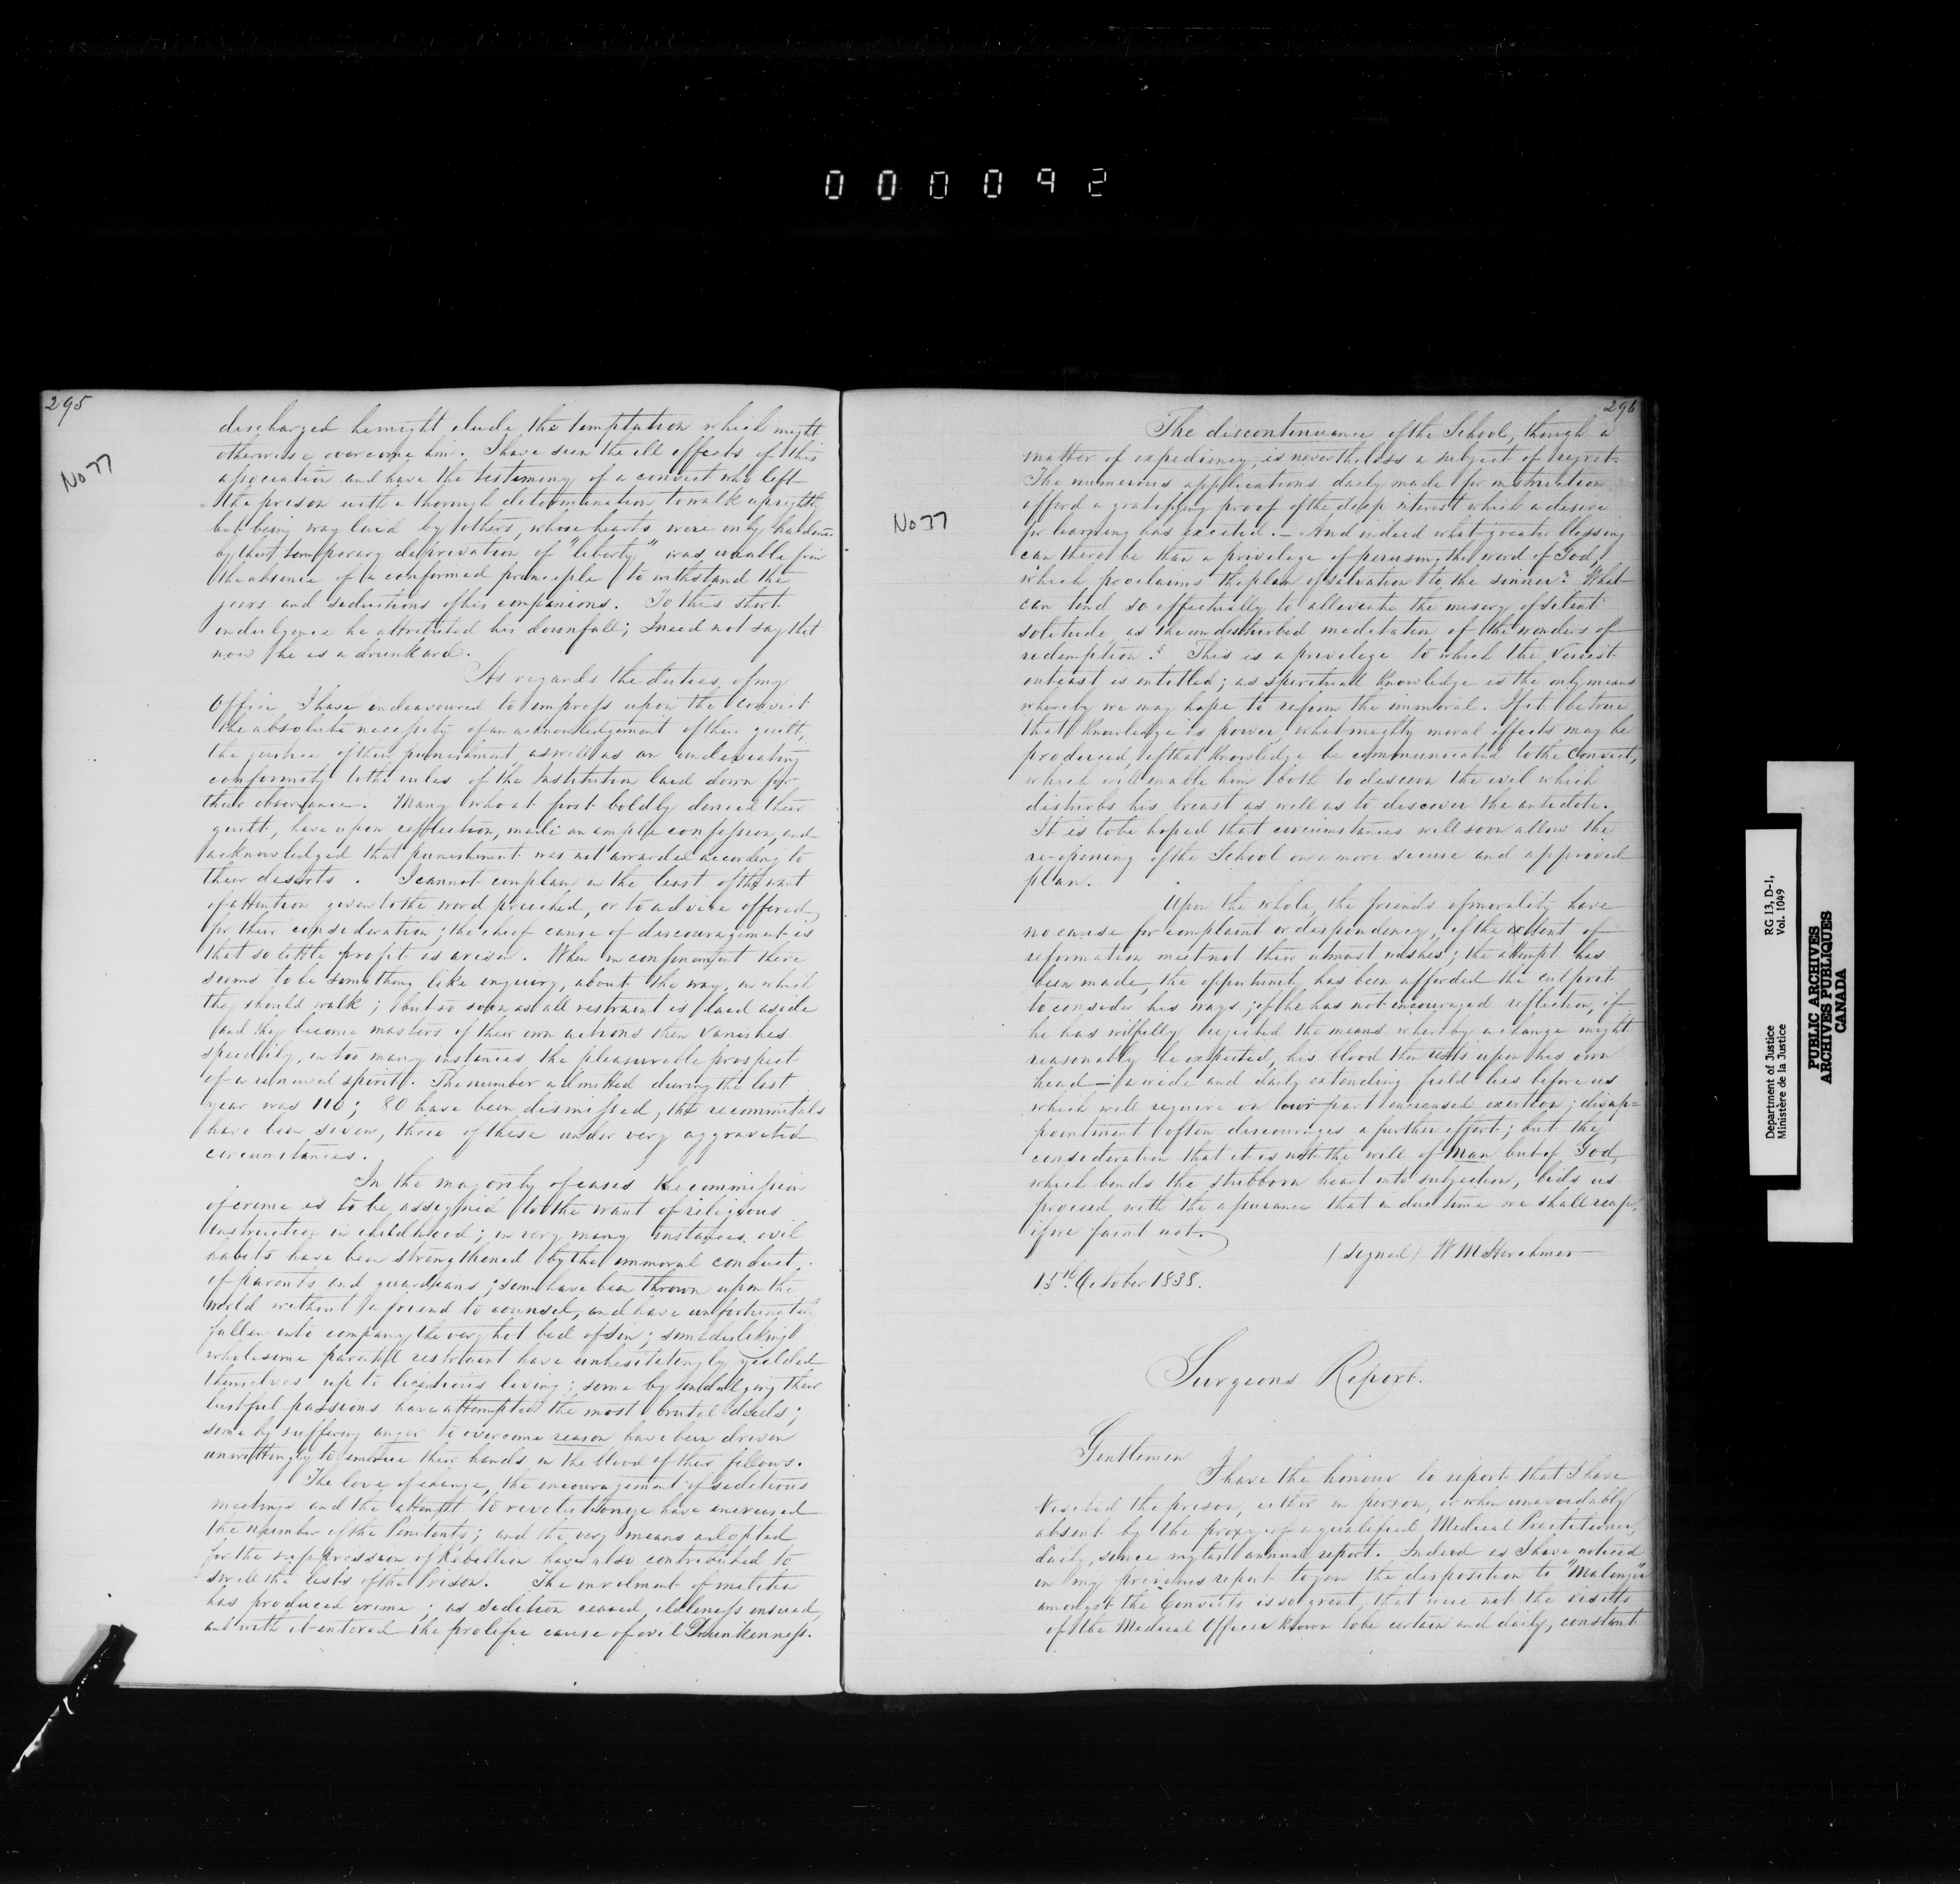 000092
295
No 77
discharged he might elude the temptation which might
otherwise overcome him. I have seen the ill effects of this
association and have the testimony of a convict who left
the prison with a thorough determination to walk uprightly
but being way laid by others, whose hearts were only hardened
by their temporary deprivation of "liberty" was unable from
the absence of a confirmed principle to withstand the
jeers and seductions of his companions. To this short
indulgence he attributed his downfall; I need not say that
now he is a drunkard.
As regards the duties of my
Office I have endeavoured to impress upon the convict
the absolute necessity of an acknowledgement of their guilt,
the justice of their punishment, as well as an undeviating
conformity to the rules of the Institution laid down for
their observance. Many who at first boldly denied their
guilt, have upon reflection, made an ample confession, and
acknowledged that punishment was not awarded according to
their deserts. I cannot complain in the least of the want
of attention given to the word preached, or to advice offered
for their consideration; the chief cause of discouragement is
that so little profit is arisen. When in confinement there
seems to be something like enquiry, about the way, in which
they should walk; but so soon as all restraint is laid aside
and they become masters of their own actions then vanishes
speedily, in too many instances the pleasurable prospect
of a renewed spirit. The number admitted during the last
year was 110; 80 have been dismissed, the recommittals
have been seven, three of these under very aggravated
circumstances.
In the majority of cases the commission
of crime is to be assigned to the want of religious
instruction in childhood; in very many instances, evil
habits have been strengthened by the immoral conduct
of parents and guardians; some have been thrown upon the
world without a friend to counsel, and have unfortunately
fallen into company the very hot bed of sin; some disliking
wholesome parental restraint have unhesitatingly yielded
themselves up to licentious living; some by indulging their
lustful passions have attempted the most brutal deeds;
some by suffering anger to overcome reason have been driven
unwittingly to embrue their hands in the blood of their fellows.
The love of change, the encouragement of seditious
meetings and the attempt to revolutionize have increased
the number of the Penitents; and the very means adopted
for the suppression of Rebellion have also contributed to
swell the lists of the Prison. The enrolment of militia
has produced crime; as sedition ceased, idleness ensued,
and with it entered the prolific cause of evil Drunkenness.
296
No 77
The discontinuance of the School, though a
matter of expediency, is nevertheless a subject of regret.
The numerous applications daily made for instruction
afford a gratifying proof of the deep interest which a desire
for learning has excited. - And indeed what greater blessing
can there be than a privilege of perusing the word of God,
which proclaims the plan of salvation to the sinner? What
can tend so effectually to alleviate the misery of silent
solitude as the undisturbed meditation of the wonders of
redemption? This is a privilege to which the veriest
outcast is entitled; as spiritual knowledge is the only means
whereby we may hope to reform the immoral. If it be true
that knowledge is power, what mighty moral effects may be
produced, if that knowledge be communicated to the Convict,
which will enable him both to discern the evil which
disturbs his breast as well as to discover the antidote.
It is to be hoped that circumstances will soon allow the
re-opening of the School on a more secure and approved
plan.
Upon the whole, the friends of morality have
no cause for complaint or despondency, if the extent of
reformation meet not their utmost wishes; the attempt has
been made, the opportunity has been afforded the culprit
to consider his ways; if he has not encouraged reflection, if
he has wilfully rejected the means whereby a change might
reasonably be expected, his blood then rests upon his own
head - a wide and daily extending field lies before us
which will require on our part increased exertion; disap=
pointment often discourages a further effort; but the
consideration that it is not the will of Man but of God,
which bends the stubborn heart into subjection, bids us
proceed with the assurance that in due time we shall reap,
if we faint not.
(signed) W M Herchmer
15th October 1838.
Surgeons Report.
Gentlemen
I have the honour to report that I have
visited the prison, either in person, or when unavoidably
absent by the proxy of a qualified Medical Practitioner,
daily, since my last annual report. Indeed as I have noticed
in my previous report to you the disposition to "Malinger"
amongst the Convicts is so great, that were not the visits
of the Medical Officer known to be certain and daily, constant
Department of Justice
Ministère de la Justice
RG 13, D-1,
Vol. 1049
PUBLIC ARCHIVES
ARCHIVES PUBLIQUES
CANADA